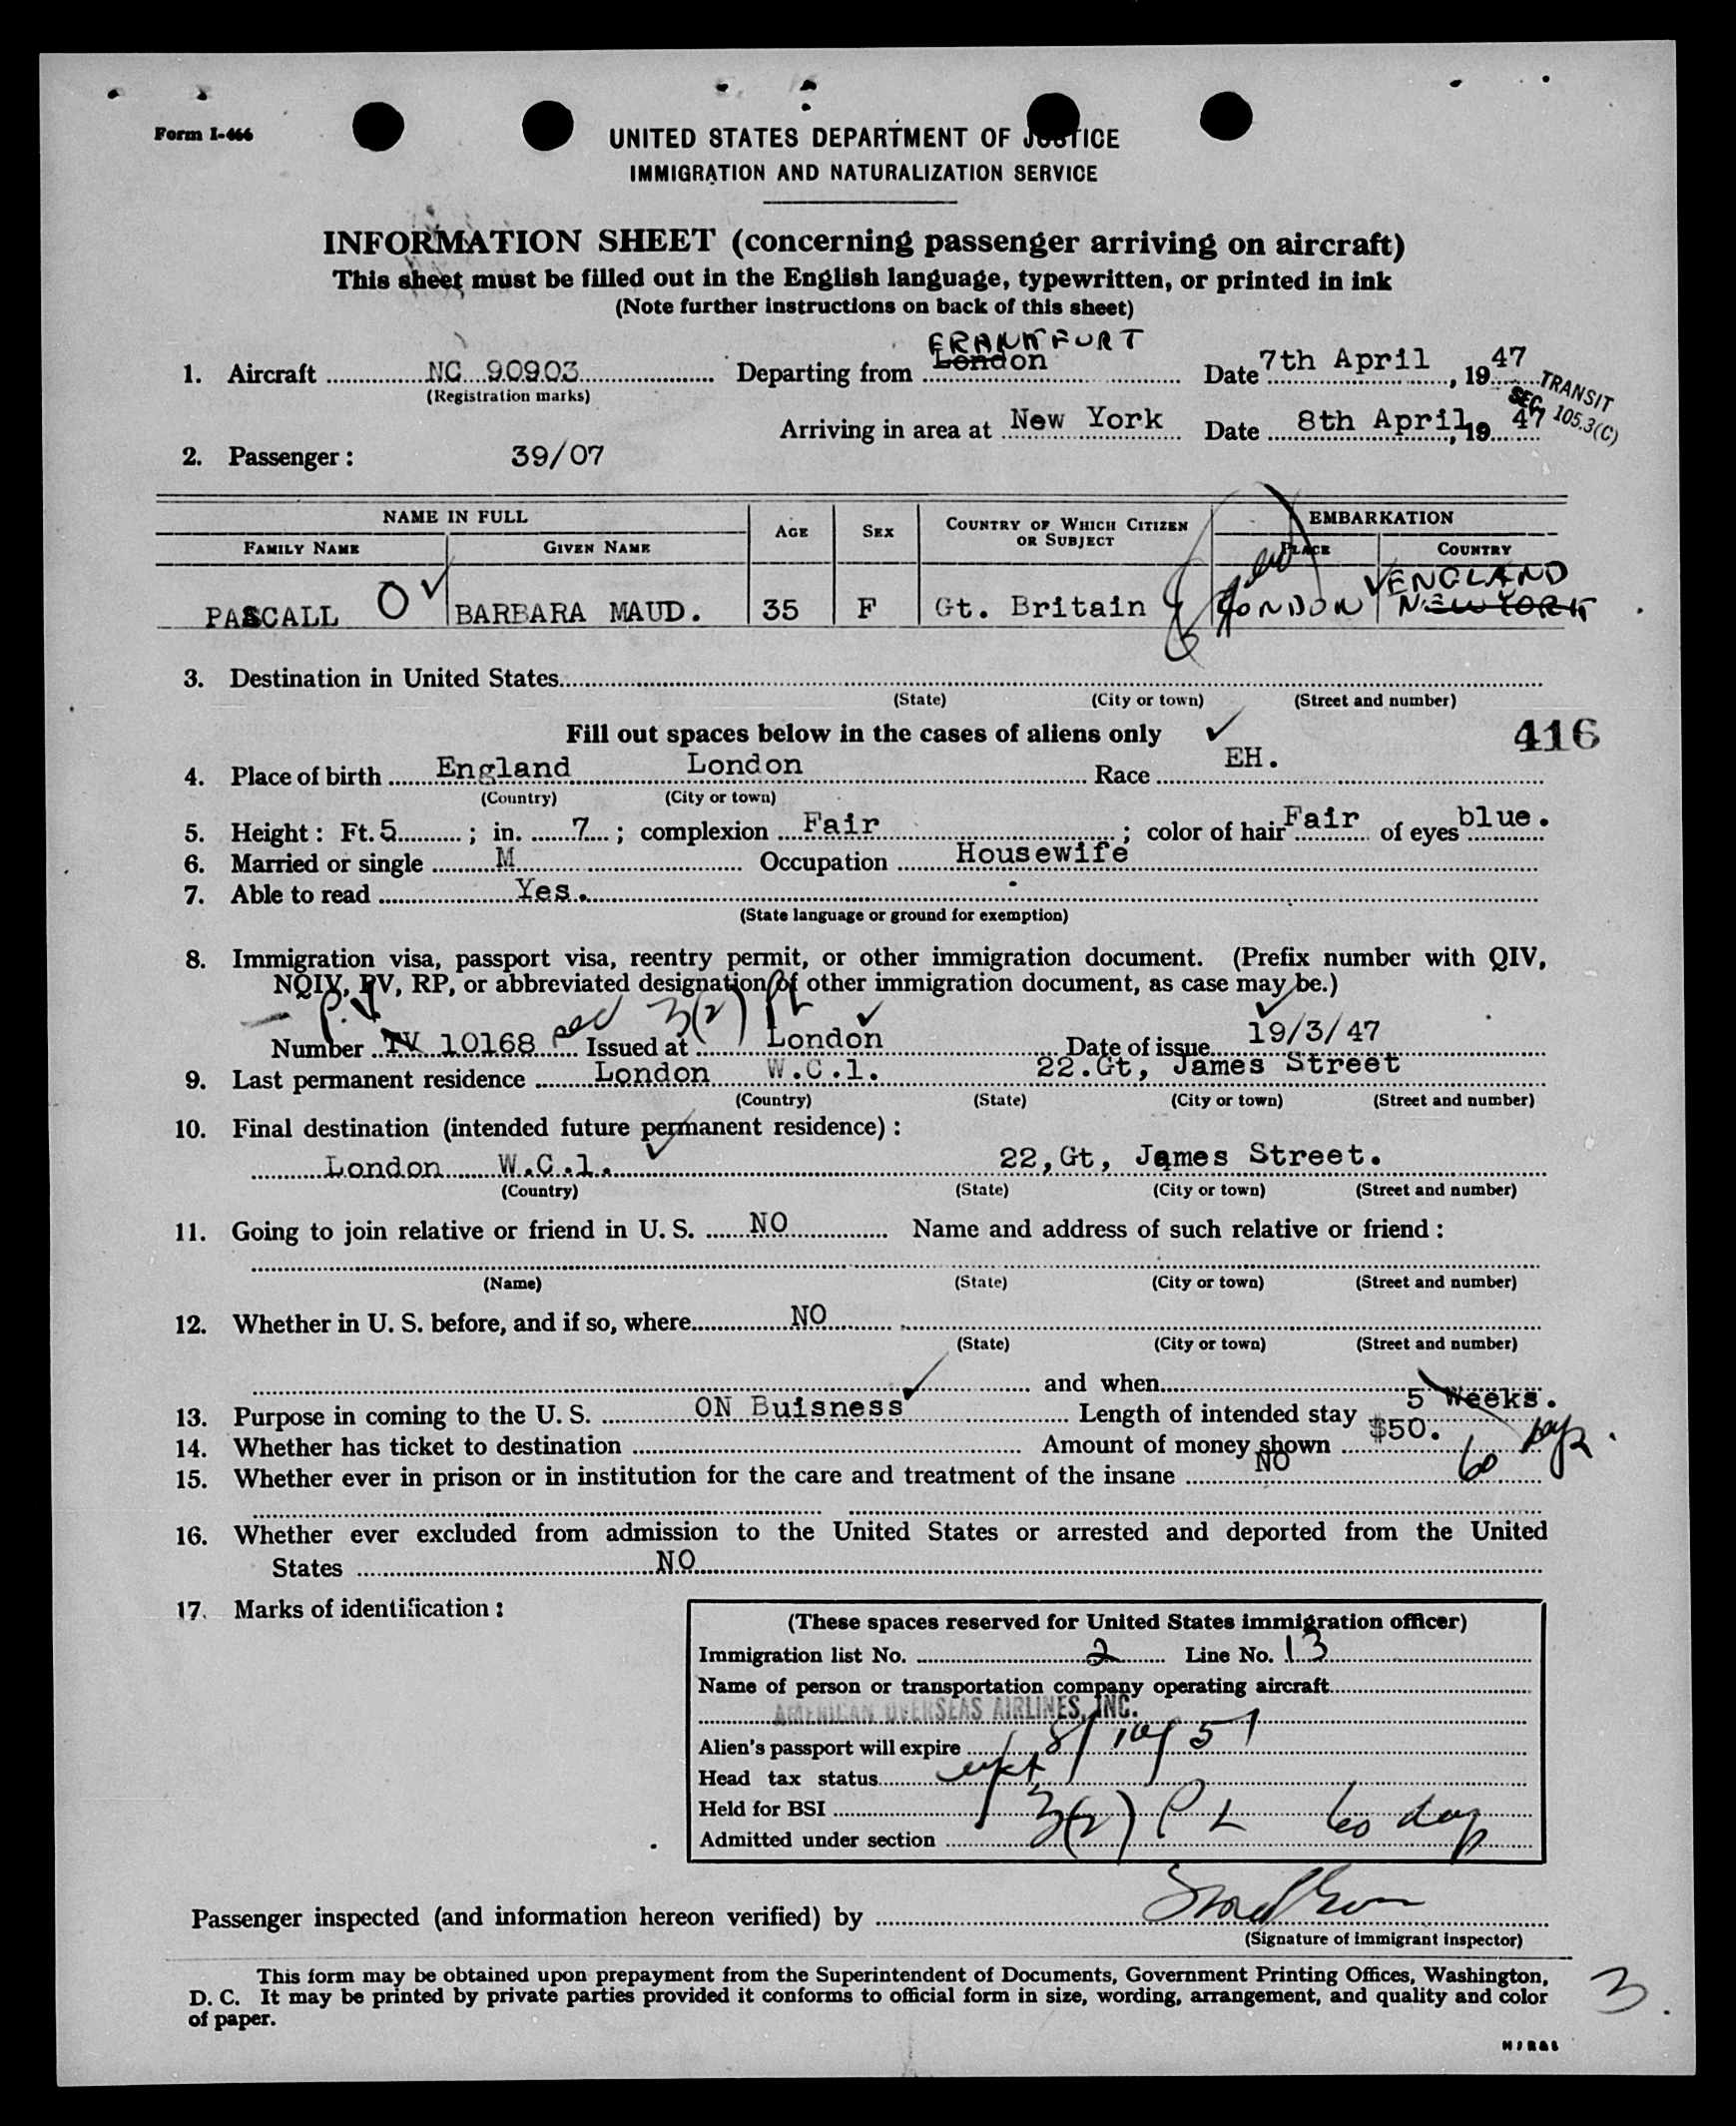 Form I-466
UNITED STATES DEPARTMENT OF JUSTICE
IMMIGRATION AND NATURALIZATION SERVICE
INFORMATION SHEET (concerning passenger arriving on aircraft)
This sheet must be filled out in the English language, typewritten, or printed in ink
(Note further instructions on back of this sheet)
FRANKFURT
1. Aircraft NC 90903 Departing from London Date 7th April, 1947
(Registration marks)
TRANSIT
SEC. 105.3(C)
Arriving in area at New York Date 8th April, 19 47
2. Passenger: 39/07
NAME IN FULL AGE SEX COUNTRY OF WHICH CITIZEN OR SUBJECT EMBARKATION
FAMILY NAME GIVEN NAME PLACE COUNTRY
ENGLAND
PASCALL O BARBARA MAUD. 35 F Gt. Britain LONDON NEW YORK
3. Destination in United States
(State) (City or town) (Street and number)
Fill out spaces below in the cases of aliens only
416
4. Place of birth England London Race EH.
(Country) (City or town)
5. Height: Ft. 5 ; in. 7 ; complexion Fair ; color of hair Fair of eyes blue.
6. Married or single M Occupation Housewife
7. Able to read Yes.
(State language or ground for exemption)
8. Immigration visa, passport visa, reentry permit, or other immigration document. (Prefix number with QIV,
NQIV, PV, RP, or abbreviated designation of other immigration document, as case may be.)
P.V. 3(2)
Number TV 10168 Issued at London Date of issue 19/3/47
9. Last permanent residence London W.C.1. 22.Gt, James Street
(Country) (State) (City or town) (Street and number)
10. Final destination (intended future permanent residence):
London W.C.1. 22,Gt, James Street.
(Country) (State) (City or town) (Street and number)
11. Going to join relative or friend in U. S. NO Name and address of such relative or friend:
(Name) (State) (City or town) (Street and number)
12. Whether in U. S. before, and if so, where NO
(State) (City or town) (Street and number)
and when
13. Purpose in coming to the U. S. ON Buisness Length of intended stay 5 Weeks.
14. Whether has ticket to destination Amount of money shown $50. 60 days.
15. Whether ever in prison or in institution for the care and treatment of the insane NO
16. Whether ever excluded from admission to the United States or arrested and deported from the United
States NO
17. Marks of identification:
(These spaces reserved for United States immigration officer)
Immigration list No. 2 Line No. 13
Name of person or transportation company operating aircraft
AMERICAN OVERSEAS AIRLINES, INC.
Alien's passport will expire 8/10/51
Head tax status
Held for BSI
Admitted under section 3(2) PL 60 day
Passenger inspected (and information hereon verified) by
(Signature of immigrant inspector)
This form may be obtained upon prepayment from the Superintendent of Documents, Government Printing Offices, Washington,
D. C. It may be printed by private parties provided it conforms to official form in size, wording, arrangement, and quality and color
of paper.
3.